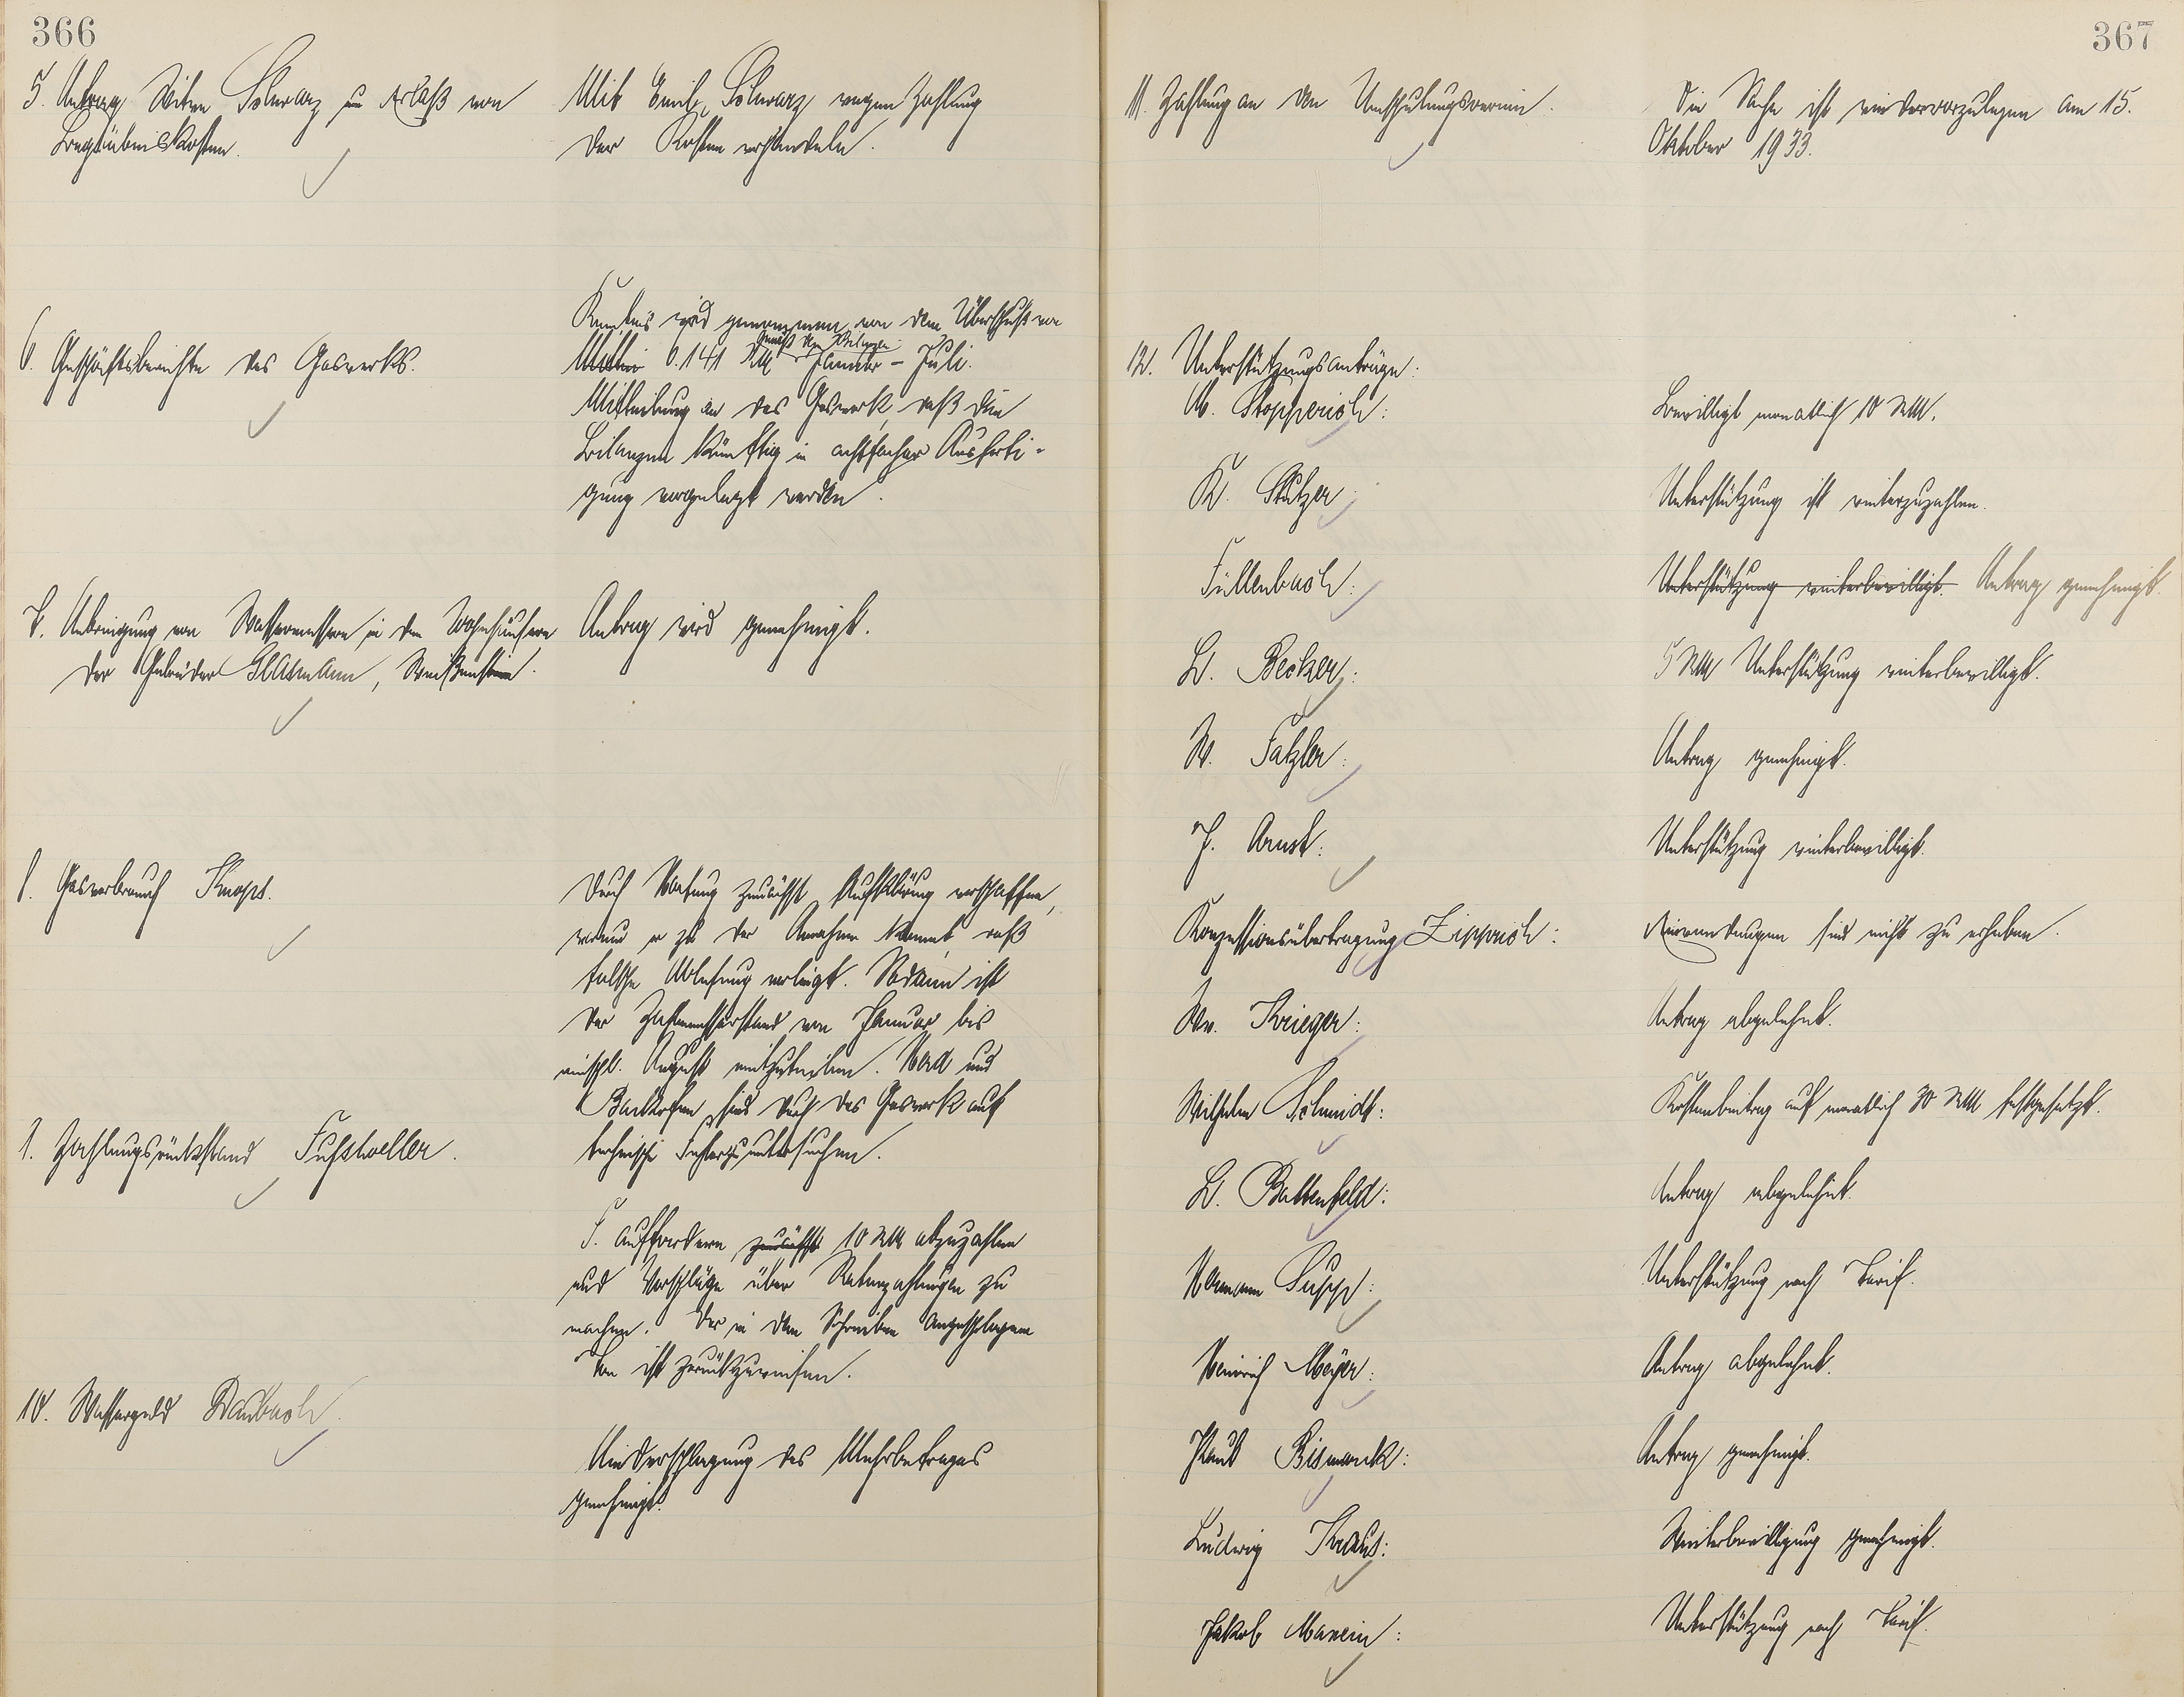 366
5. Antrag Witwe Schwarz um Erlaß von
Begräbniskosten.
Mit Emil Schwarz wegen Zahlung
der Kosten verhandeln.
6. Geschäftsberichte des Gaswerks.
Kenntnis wird genommen von dem Überschuß von
gemäß den Bilanzen
6.141 RM Januar - Juli.
Mitteilung an das Gaswerk, daß die
Bilanzen künftig in achtfacher Ausferti-
gung vorgelegt werden.
7. Anbringung von Wassermessern in den Wohnhäusern
der Gebrüder Glasmann, Weißenstein.
Antrag wird genehmigt.
8. Gasverbrauch Knops.
Durch Ladung zunächst Aufklärung verschaffen,
warum er zu der Annahme kommt daß
falsche Ablesung vorliegt. Sodann ist
der Gasmesserstand von Januar bis
einschl. August mitzuteilen. Herd und
Backofen sind durch das Gaswerk auf
technische Fehler zu untersuchen.
9. Zahlungsrückstand Fußhoeller.
F. auffordern zunächst 10 RM abzuzahlen
und Vorschläge über Ratenzahlungen zu
machen. Der in dem Schreiben angeschlagene
Ton ist zurückzuweisen.
10. Wassergeld Daubach.
Niederschlagung des Mehrbetrages
genehmigt.
367
11. Zahlung an den Umschulungsverein.
Die Sache ist wiedervorzulegen am 15.
Oktober 1933.
12. Unterstützungsanträge:
M. Stopperich: Bewilligt monatlich 10 RM.
K. Stutzer: Unterstützung ist weiterzuzahlen.
Füllenbach: Unterstützung weiterbewilligt. Antrag genehmigt.
L. Becker: 5 RM Unterstützung weiterbewilligt.
W. Fatzler: Antrag genehmigt.
J. Arnst: Unterstützung weiterbewilligt.
Konzessionsübertragung Zipprich: Einwendungen sind nicht zu erheben.
Ww. Krieger: Antrag abgelehnt.
Wilhelm Schmidt: Kostenbeitrag auf monatlich 30 RM festgesetzt.
L. Battenfeld: Antrag abgelehnt.
Hermann Supp: Unterstützung nach Tarif.
Heinrich Meyer: Antrag abgelehnt.
Paul Bismarck: Antrag genehmigt.
Ludwig Kraus: Weiterbewilligung genehmigt.
Jakob Manein: Unterstützung nach Tarif.